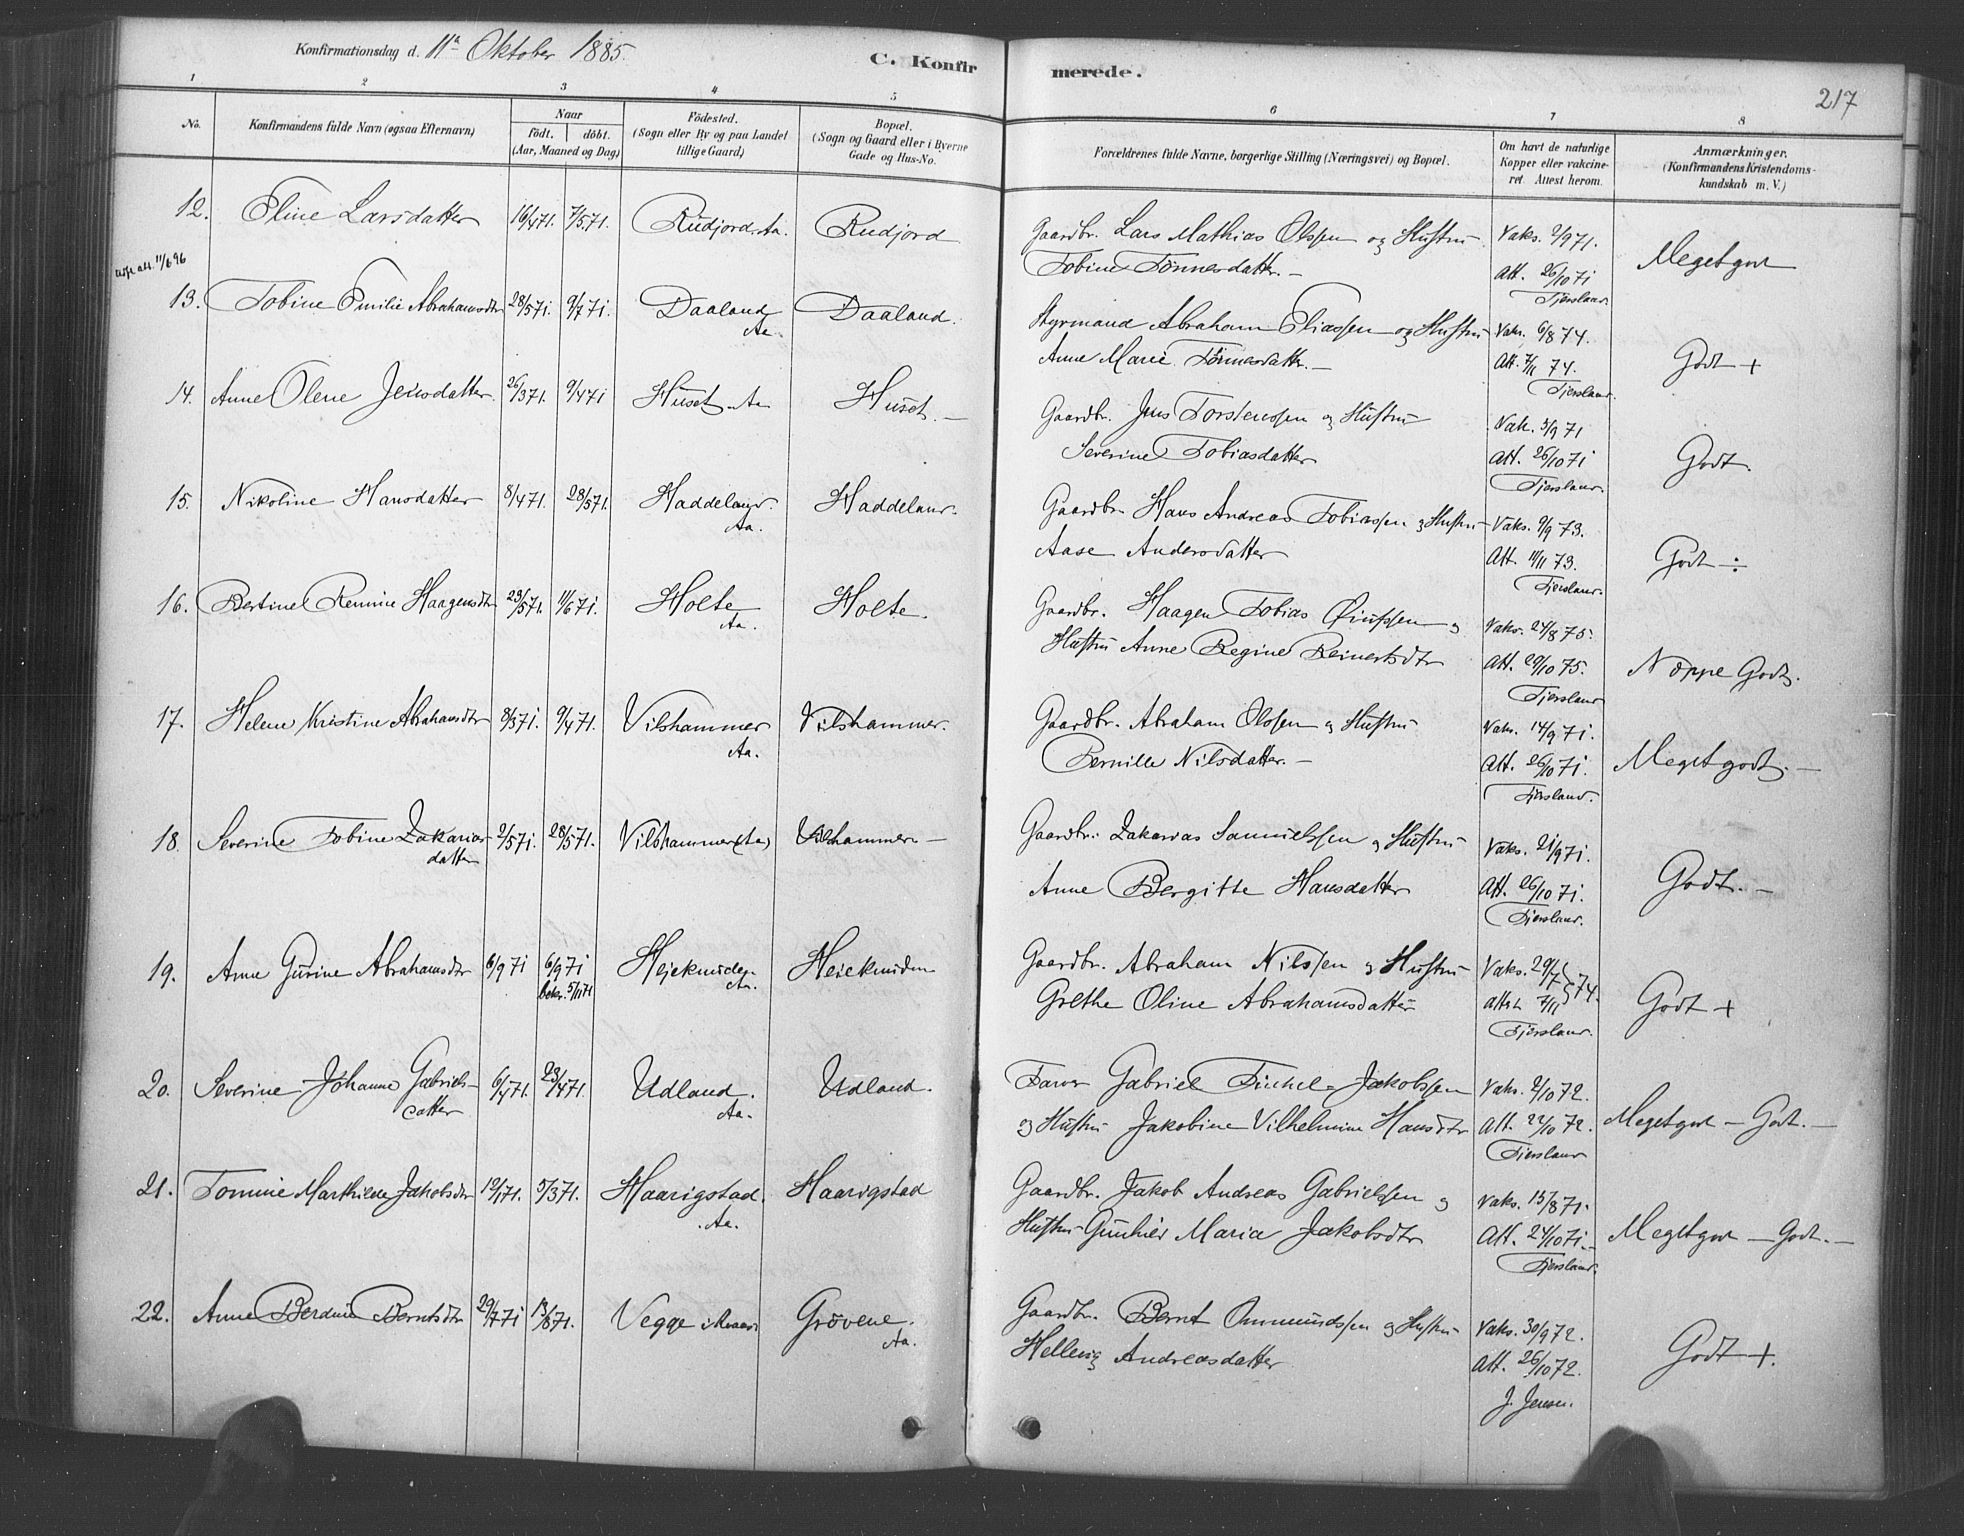 Konfirmationsdag d. 11te Oktober 1885.
C. Konfirmerede.
217
1 2 3 4 5 6 7 8
No.
Konfirmandens fulde Navn (ogsaa Efternavn)
Naar
födt. döbt.
(Aar, Maaned og Dag)
Födested.
(Sogn eller By og paa Landet
tillige Gaard)
Bopæl.
(Sogn og Gaard eller i Byerne
Gade og Hus-No.
Forældrenes fulde Navne, borgerlige Stilling (Næringsvei) og Bopæl.
Om havt de naturlige
Kopper eller vakcine-
ret. Attest herom.
Anmærkninger.
(Konfirmandens Kristendoms-
kundskab m. V.)
12. Eline Larsdatter 16/4 71. 7/5 71. Rudjord. Aa. Rudjord
Gaardbr. Lars Mathias Olssen og Hustru
Tobine Tönnesdatter. –
Vaks. 2/9 71.
Att. 26/10 71
Fjersland.
Megetgodt
att. 11/6 96
13. Tobine Emilie Abrahamsdtr 28/5 71. 9/7 71. Daaland Aa. Daaland.
Styrmand Abraham Eliassen og Hustru
Anne Marie Tönnesdatter. –
Vaks. 6/8 74.
Att. 7/11 74.
Fjersland.
Godt +
14. Anne Olene Jensdatter. 26/3 71. 9/4 71 Huset. Aa Huset. –
Gaardbr. Jens Torstenssen og Hustru
Severine Tobiasdatter
Vak. 3/9 71
Att. 26/10 71
Fjersland.
Godt.
15. Nikoline Hansdatter 8/4 71. 28/5 71. Haddeland. Aa. Haddeland.
Gaardbr. Hans Andreas Tobiassen og Hustru
Aase Andersdatter
Vaks. 9/9 73.
Att. 11/11 73.
Fjersland.
Godt ÷
16. Bertine Remine Haagensdtr 29/5 71. 11/6 71. Holte Aa. Holte.
Gaardbr. Haagen Tobias og
Hustru Anne Regine Reinertsdtr
Vaks. 24/8 75.
Att. 29/10 75.
Fjersland
Nöppe Godt.
17. Helene Kristine Abrahamsdtr 8/3 71. 9/4 71. Vilshammer Aa. Vilshammer.
Gaardbr. Abraham Olssen og Hustru
Pernille Nilsdatter. –
Vaks. 14/9 71.
Att. 26/10 71.
Fjersland.
Megetgodt. –
18. Severine Tobine Zakarias 2/5 71. 28/5 71. Vilshammer (Aa) Vilshammer –
datter
Gaardbr. Zakarias Samuelssen og Hustru
Anne Bergitte Hansdatter
Vaks. 21/9 71.
Att. 26/10 71.
Fjersland.
Godt. –
19. Anne Gurine Abrahamsdtr 6/9 71 6/9 71 Aa.
bekr. 5/11 71
Gaardbr. Abraham Nilssen og Hustru
Grethe Oline Abrahamsdatter
Vaks. 29/7 74.
Attest 7/11
Fjersland.
Godt +
20. Severine Johanne Gabriels- 6/4 71. 23/4 71. Udland. Aa. Udland.
datter
Farver Gabriel Jakobssen
og Hustru Jakobine Vilhelmine Hansdtr
Vaks. 2/10 72.
Att. 22/10 72.
Fjersland
Megetgodt – Godt. –
21. Tomine Marthilde Jakobsdtr 19/1 71. 5/3 71. Haarigstad. Aa. Haarigstad
Gaardbr. Jakob Andreas Gabrielssen og
Hustru Gunhild Maria Jakobsdtr
Vaks. 15/8 71.
Att. 24/10 71.
Fjersland.
Megetgodt – Godt. –
22. Anne Berdine Berntsdtr 29/7 71 13/8 71. Vegge i Grövene. Aa.
Gaardbr. Bernt Ommundssen og Hustru
Hellevig Andreasdatter
Vaks. 30/9 72.
Att. 26/10 72.
J. Jensen.
Godt +.